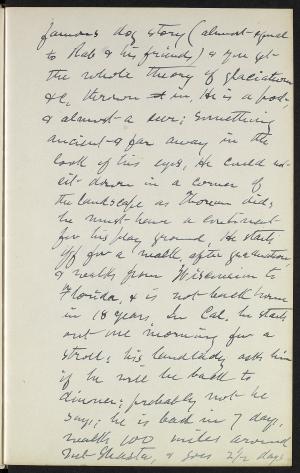 famous dog story (almost equal
to Rab & his friends) & you get
the whole theory of glaciation
&c, thrown in. He is a poet,
& almost a seer; something
ancient & far away in the
look of his eyes. He could not
sit down in a corner of
the landscape as Thoreau did;
he must have a continent
for his play ground. He starts
off for a walk, after graduation
& walks from Wisconsin to
Florida, & is not back home
in 18 years. In Cal. he starts
out one morning for a
stroll; his landlady asks him
if he will be back to
dinner; probably not he
says; he is back in 7 days,
walks 100 miles around
Mt Shasta, & goes 2 1/2 days